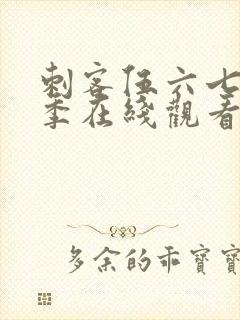 刺客伍六七
季在綫觀看
多余的乖寶寶